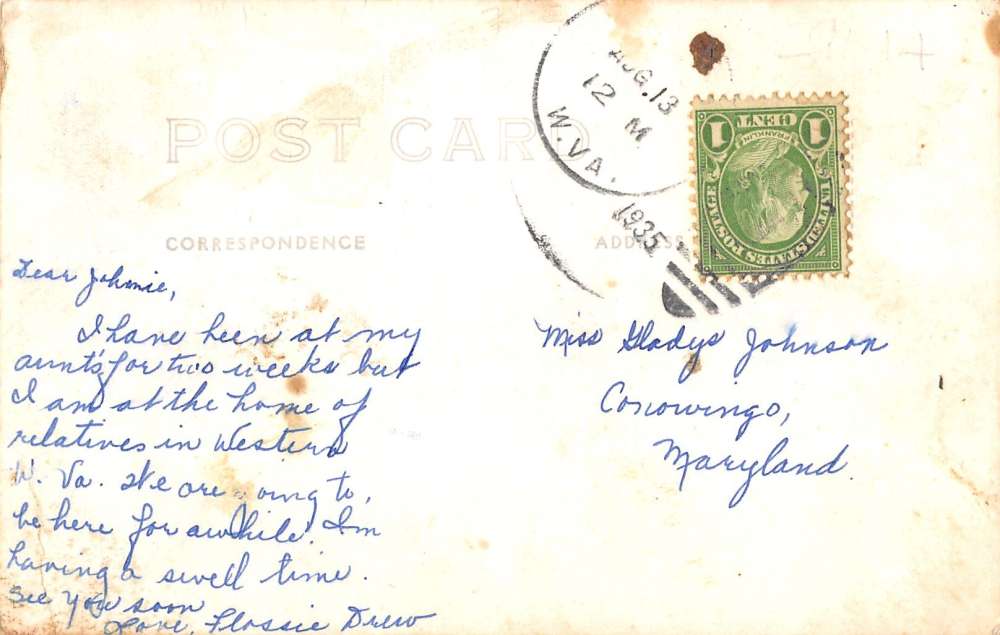 POST CARD
CORRESPONDENCE
ADDRESS
AUG. 13
12 M
W. VA.
1935
1 CENT 1
FRANKLIN
UNITED STATES POSTAGE
Dear Johnie,
I have been at my
aunt's for two weeks but
I am at the home of
relatives in Western
W. Va. We are going to
be here for awhile. I'm
having a swell time.
See you soon
Love, Flossie Drew
Miss Gladys Johnson
Conowingo,
Maryland.